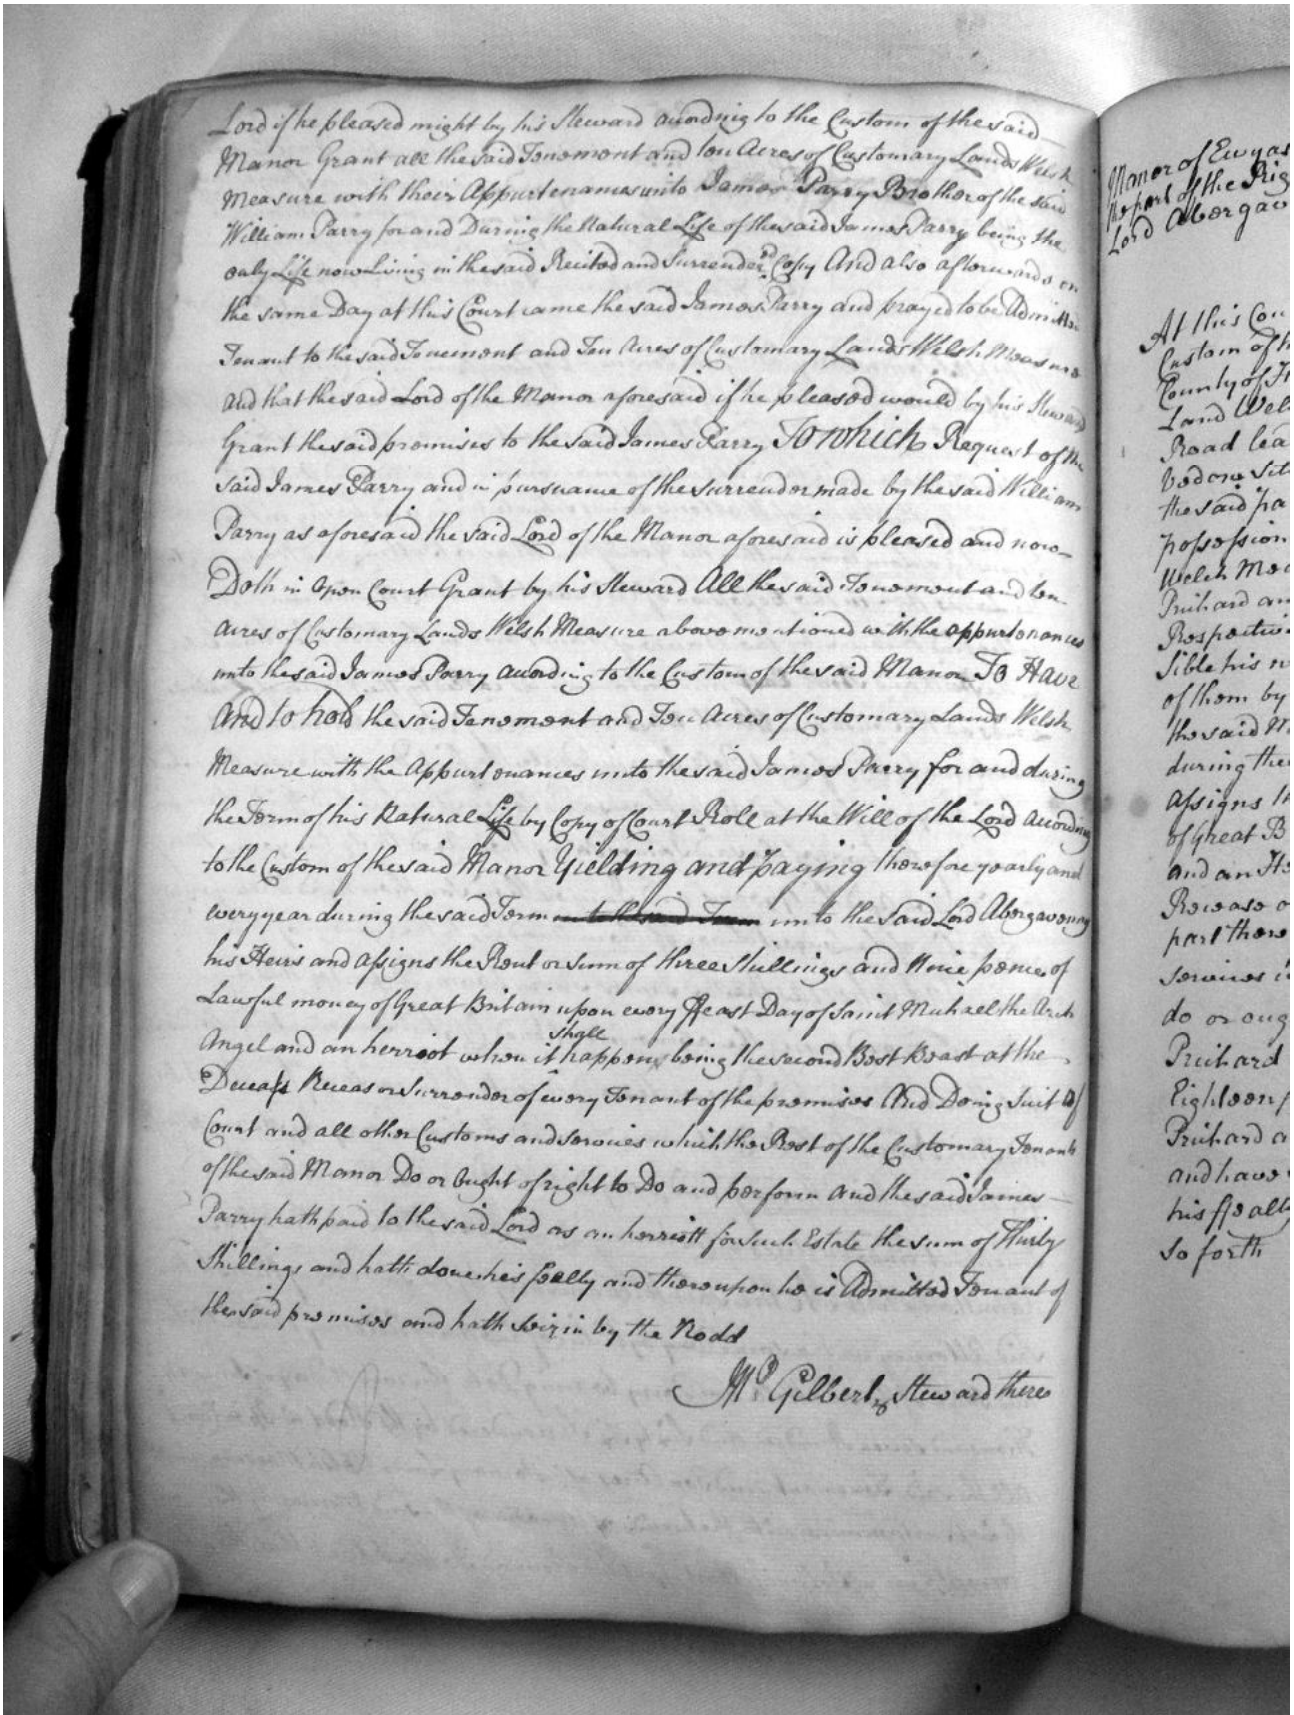 Lord if he pleased might by his Steward according to the Custom of the said
Manor Grant all the said Tenement and ten Acres of Customary Lands Welsh
Measure with their Appurtenances unto James Parry Brother of the said
William Parry for and During the Natural Life of the said James Parry being the
only Life now Living in the said Recited and Surrender'd Copy And also afterwards on
the same Day at this Court came the said James Parry and prayed to be Admitted
Tenant to the said Tenement and Ten Acres of Customary Lands Welsh Measure
and that the said Lord of the Manor aforesaid if he pleased would by his Steward
Grant the said premises to the said James Parry To which Request of the
said James Parry and in pursuance of the surrender made by the said William
Parry as aforesaid the said Lord of the Manor aforesaid is pleased and now
Doth in Open Court Grant by his Steward All the said Tenement and ten
Acres of Customary Lands Welsh Measure abovementioned with the appurtenances
unto the said James Parry according to the Custom of the said Manor To Have
And to hold the said Tenement and Ten Acres of Customary Lands Welsh
Measure with the Appurtenances unto the said James Parry for and during
the Term of his Natural Life by Copy of Court Roll at the Will of the Lord According
to the Custom of the said Manor Yielding and paying therefore yearly and
every year during the said Term unto the said Term unto the Said Lord Abergavenny
his Heirs and assigns the Rent or sum of three shillings and Nine pence of
Lawful money of Great Britain upon every ffeast Day of Saint Michael the Arch
Angel and an herriot when it shall happen being the second Best Beast at the
Decease Recess or Surrender of every Tenant of the premises And Doing Suit Of
Court and all other Customs and Services which the Rest of the Customary Tenants
of the said Manor Do or Ought of right to Do and perform and the said James
Parry hath paid to the said Lord as an herriott for such Estate the sum of Thirty
Shillings and hath done his fealty and thereupon he is Admitted Tenant of
the said premises and hath Seizin by the Rodd
Gilbert Steward there
Manor of Ewyas
the part of the Rig
Lord Abergav
At this Cou
Custom of th
County of H
Land Wel
Road lea
the said pa
possession
Welsh Mea
Prichard an
Respective
of them by
the said M
during the
assigns th
of Great B
and an He
part there
services
do or oug
Prichard
Eighteen p
Prichard a
and have
his ffealty
so forth